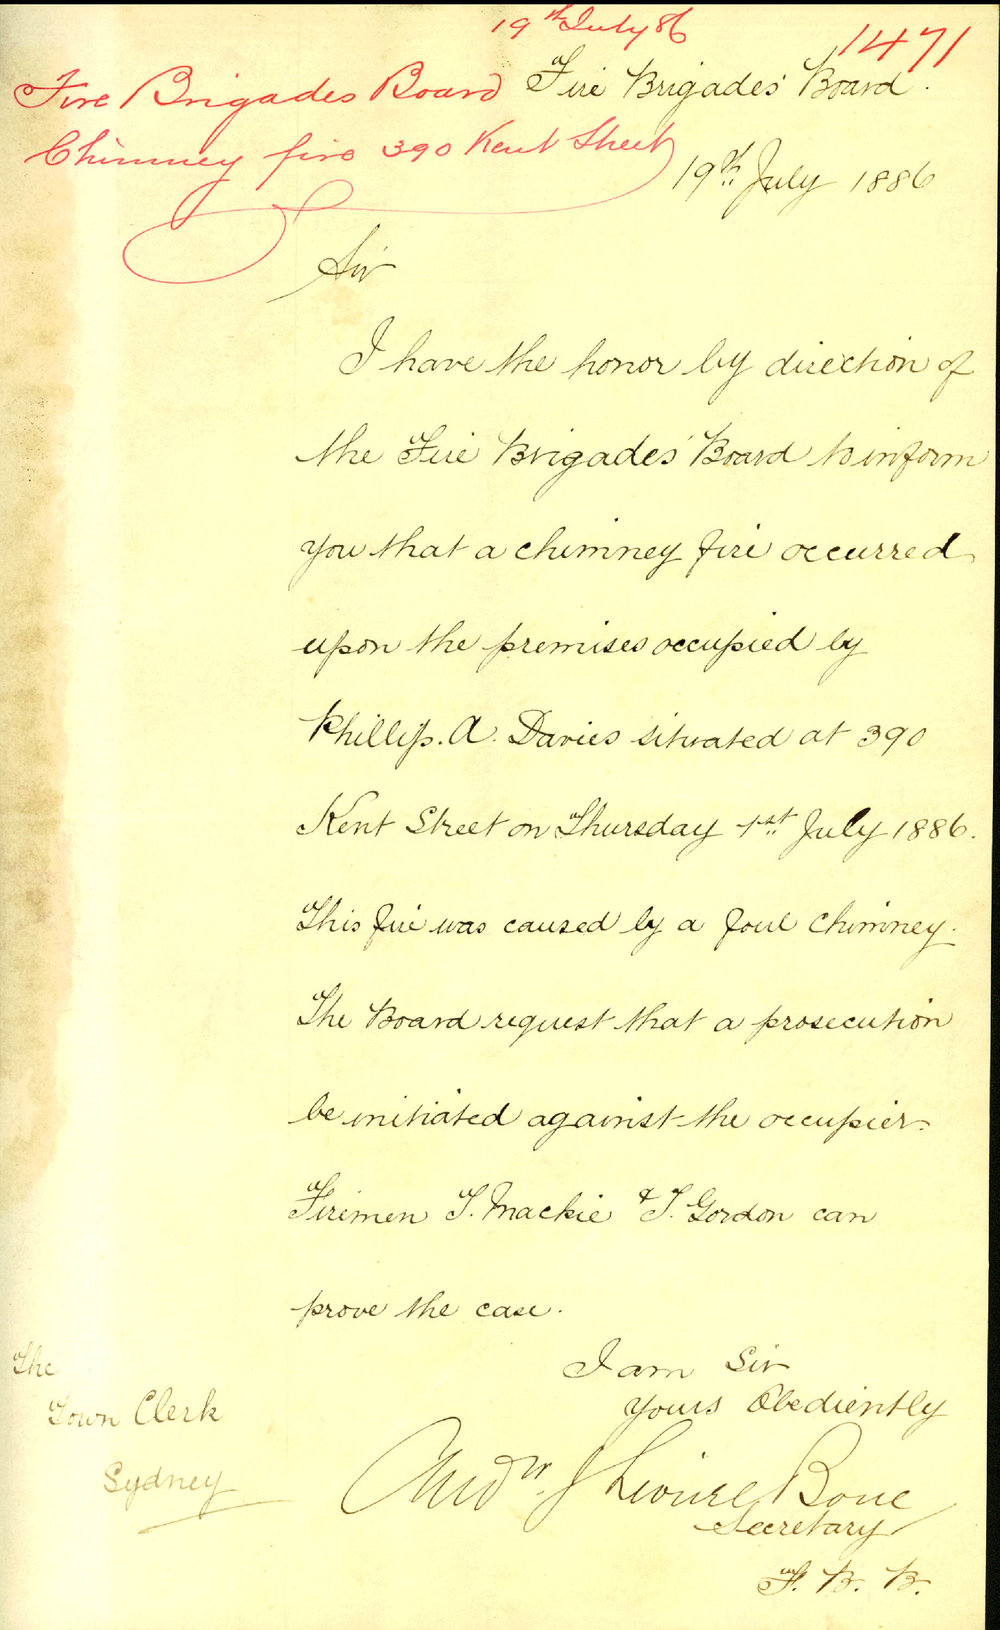 19th July 86
1471
Fire Brigades Board
Chimney fire 390 Kent Street
Fire Brigades' Board.
19th July 1886
Sir
I have the honor by direction of
the Fire Brigades' Board to inform
you that a chimney fire occurred
upon the premises occupied by
Phillip. A. Davies situated at 390
Kent Street on Thursday 1st July 1886.
This fire was caused by a foul chimney.
The Board request that a prosecution
be initiated against the occupier.
Firemen T. Mackie & J. Gordon can
prove the case.
I am Sir
Yours Obediently
Andw. J Bone
Secretary
F. B. B.
The
Town Clerk
Sydney